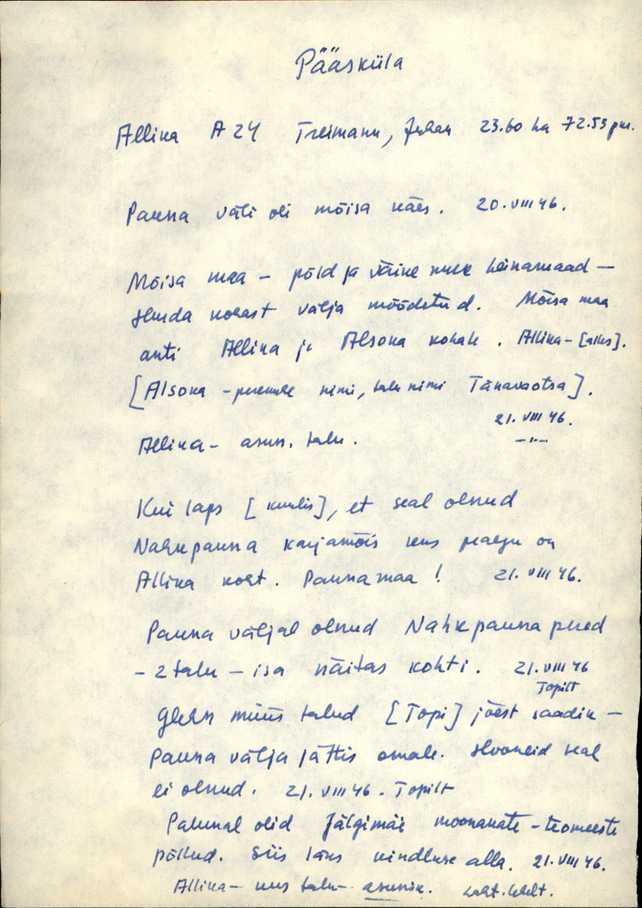 Pääsküla
Allika A 24 Treimann, Juhan 23.60 ha 72.53 pu.
Pauna väli oli mõisa käes. 20.VIII 46.
Mõisa maa – põld ja väike heinamaad –
kohast välja mõõdetud. Mõisa maa
anti Allika ja Alsona kohale. Allika-[alles].
[Alsona – peremehe nimi, talu nimi Tänavaotsa].
21.VIII 46.
Allika – asun. talu. –"–
Kui laps [kuulis], et seal olnud
Nahkpauna karjamõis kus praegu on
Allika koht. Paunamaa! 21.VIII 46.
Pauna väljal olnud Nahkpauna pered
– 2 talu – isa näitas kohti. 21.VIII 46
Topilt
Glehn müüs talud [Topi] jõest saadik –
Pauna välja jättis omale. Hooneid seal
ei olnud. 21.VIII 46. Topilt
olid Jälgimäe moonakate-teomeeste
põllud. Siis läks vindluse alla. 21.VIII 46.
Allika – uus talu – asunik.